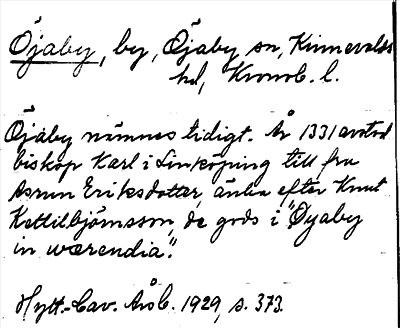 Öjaby, by, Öjaby sn, Kinnevalds
hd, Kronob. l.
Öjaby nämnes tidigt. År 1331 avstod
biskop Karl i Linköping till fru
Asrun Eriksdotter, änka efter Knut
Kettilbjörnsson, de gods i "Öyaby
in wærendia".
Hylt.-Cav. Årsb. 1929, s. 373.